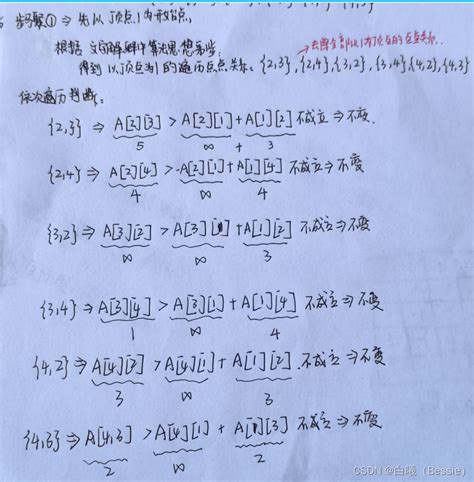 步骤① ⇒ 先以顶点1为开始点,
根据 文字解释中算法思想步骤,
去除全部以1为顶点的至点关系.
得到以顶点为1的遍历至点关系: {2,3}, {2,4}, {3,2}, {3,4}, {4,2}, {4,3}
依次遍历判断:
{2,3} ⇒ A[2][3] > A[2][1] + A[1][2] 不成立 ⇒ 不变.
5 ∞ + 3
{2,4} ⇒ A[2][4] > A[2][1] + A[1][4] 不成立 ⇒ 不变
4 ∞ 4
{3,2} ⇒ A[3][2] > A[3][1] + A[1][2] 不成立 ⇒ 不变
∞ ∞ 3
{3,4} ⇒ A[3][4] > A[3][1] + A[1][4] 不成立 ⇒ 不变
1 ∞ 4
{4,2} ⇒ A[4][2] > A[4][1] + A[1][2] 不成立 ⇒ 不变
3 ∞ 3
{4,3} ⇒ A[4,3] > A[4][1] + A[1][3] 不成立 ⇒ 不变
2 ∞ 2
CSDN @白曦（Bessie）